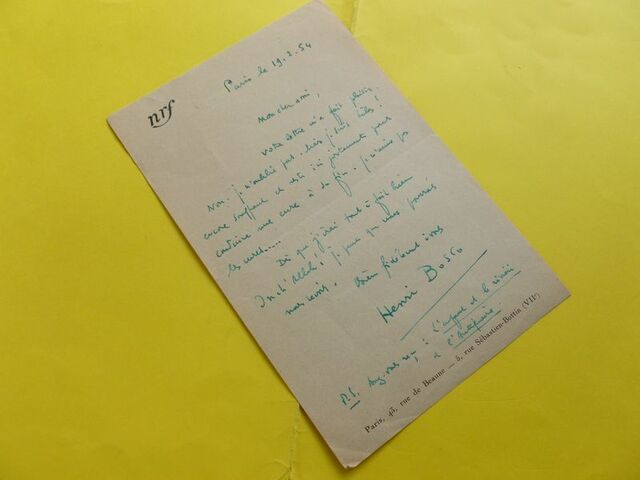 nrf
Paris le 19.2.54
Mon cher ami,
votre lettre m'a fait plaisir.
Non. je n'oublie pas. mais je suis
encore souffrant et reste ici justement pour
conduire une cure à sa fin. je n'aime pas
les cures.....
Dès que j'irai tout à fait bien
Inch'Allah! je pense que nous pourrons
nous revoir.
Bien fidèlement à vous
Henri Bosco
P.S. Avez-vous reçu : L'enfant et la rivière
et l'Antiquaire.
Paris, 43, rue de Beaune — 5, rue Sébastien-Bottin (VIIe)